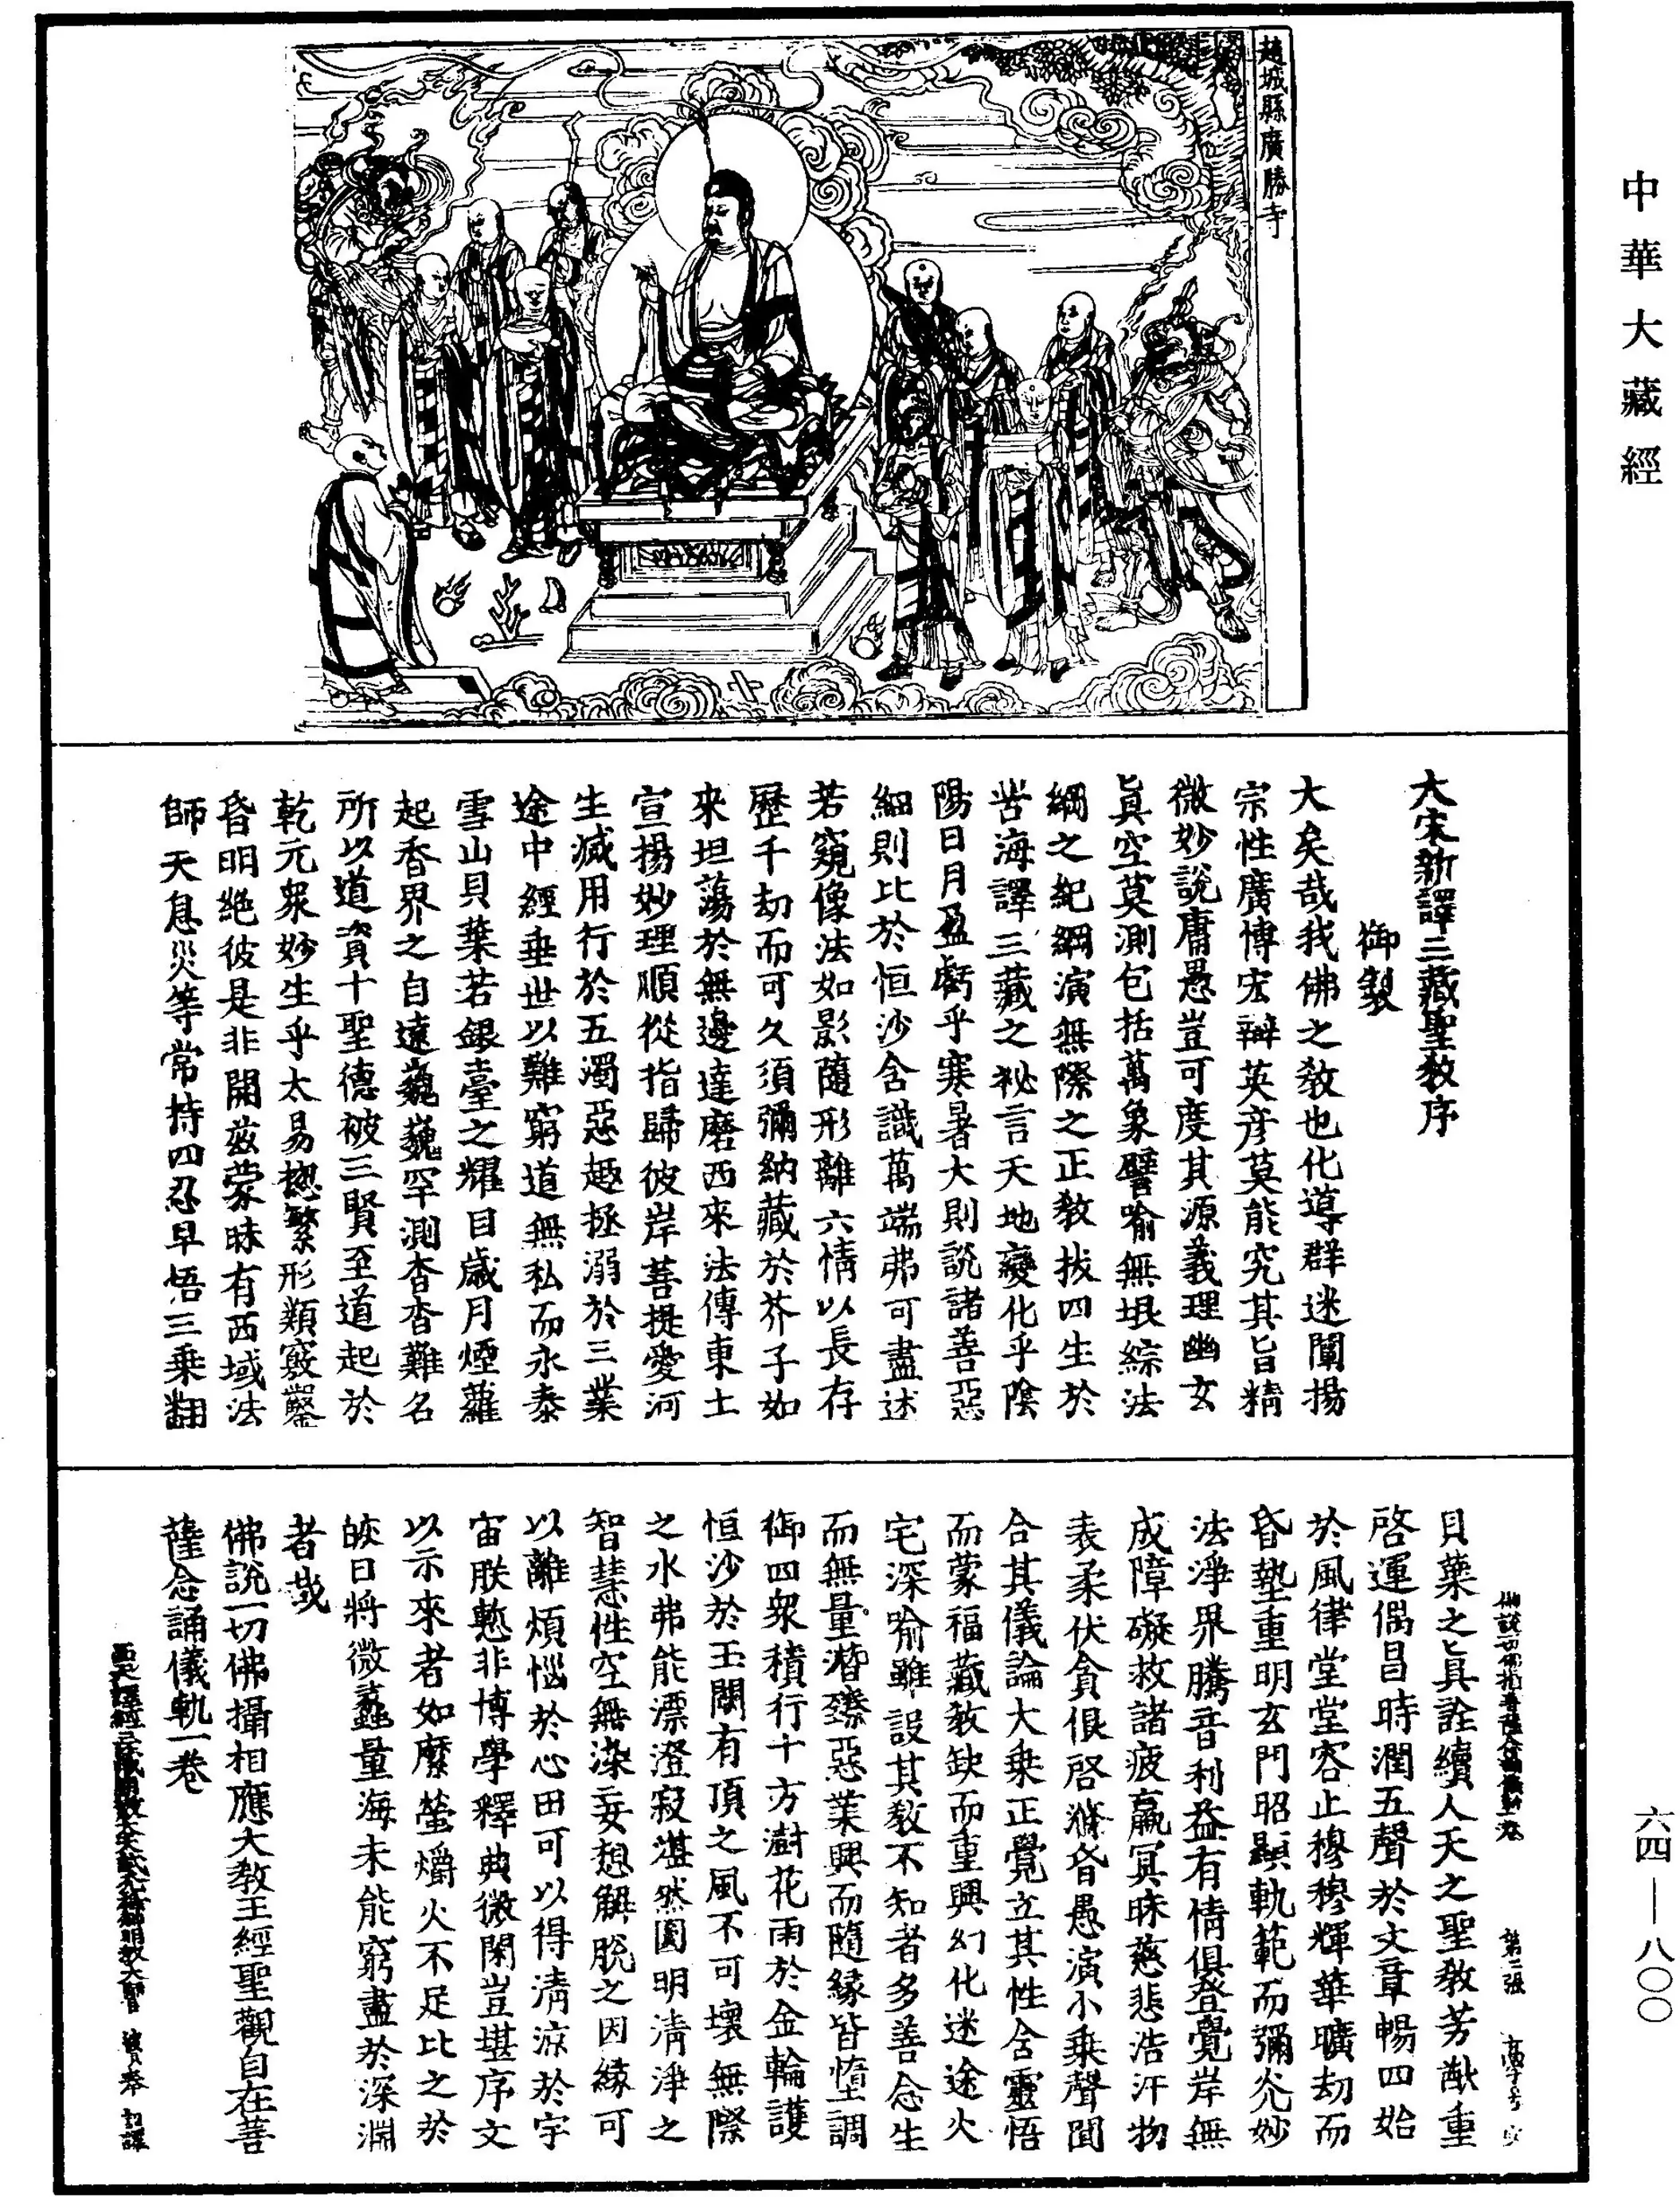 中華大藏經
趙城縣廣勝寺
大宋新譯三藏聖教序
御製
大矣哉我佛之教也化導群迷闡揚
宗性廣博宏辯英彦莫能究其旨精
微妙說庸愚豈可度其源義理幽玄
真空莫測包括萬象譬喻無垠綜法
綱之紀綱演無際之正教拔四生於
苦海譯三藏之祕言天地變化乎陰
陽日月盈虧乎寒暑大則說諸善惡
細則比於恒沙含識萬端弗可盡述
若窺像法如影隨形離六情以長存
歷千劫而可久須彌納藏於芥子如
來坦蕩於無邊達磨西來法傳東土
宣揚妙理順從指歸彼岸菩提愛河
生滅用行於五濁惡趣拯溺於三業
途中經垂世以難窮道無私而永泰
雪山貝葉若銀臺之耀目歲月煙蘿
起香界之自遠巍巍罕測杳杳難名
所以道資十聖德被三賢至道起於
乾元衆妙生乎太易摠繁形類竅鑿
昏明絶彼是非開茲蒙昧有西域法
師天息災等常持四忍早悟三乘翻
貝葉之真詮續人天之聖教芳猷重
啓運偶昌時潤五聲於文章暢四始
於風律堂堂容止穆穆輝華曠劫而
昏墊重明玄門昭顯軌範而彌光妙
法淨界騰音利益有情俱登覺岸無
成障礙救諸疲羸冥昧慈悲浩汗物
表柔伏貪很啓滌昏愚演小乘聲聞
合其儀論大乘正覺立其性含靈悟
而蒙福藏教缺而重興幻化迷途火
宅深喻雖設其教不知者多善念生
而無量潛臻惡業興而隨緣皆墮調
御四衆積行十方澍花雨於金輪護
恒沙於玉闕有頂之風不可壞無際
之水弗能漂澄寂湛然圓明清淨之
智慧性空無染妄想解脫之因緣可
以離煩惱於心田可以得清涼於宇
宙朕慙非博學釋典微閑豈堪序文
以示來者如縻螢爝火不足比之於
皎日將微蠡量海未能窮盡於深淵
者哉
佛說一切佛攝相應大教王經聖觀自在菩
薩念誦儀軌一卷
六四—八〇〇